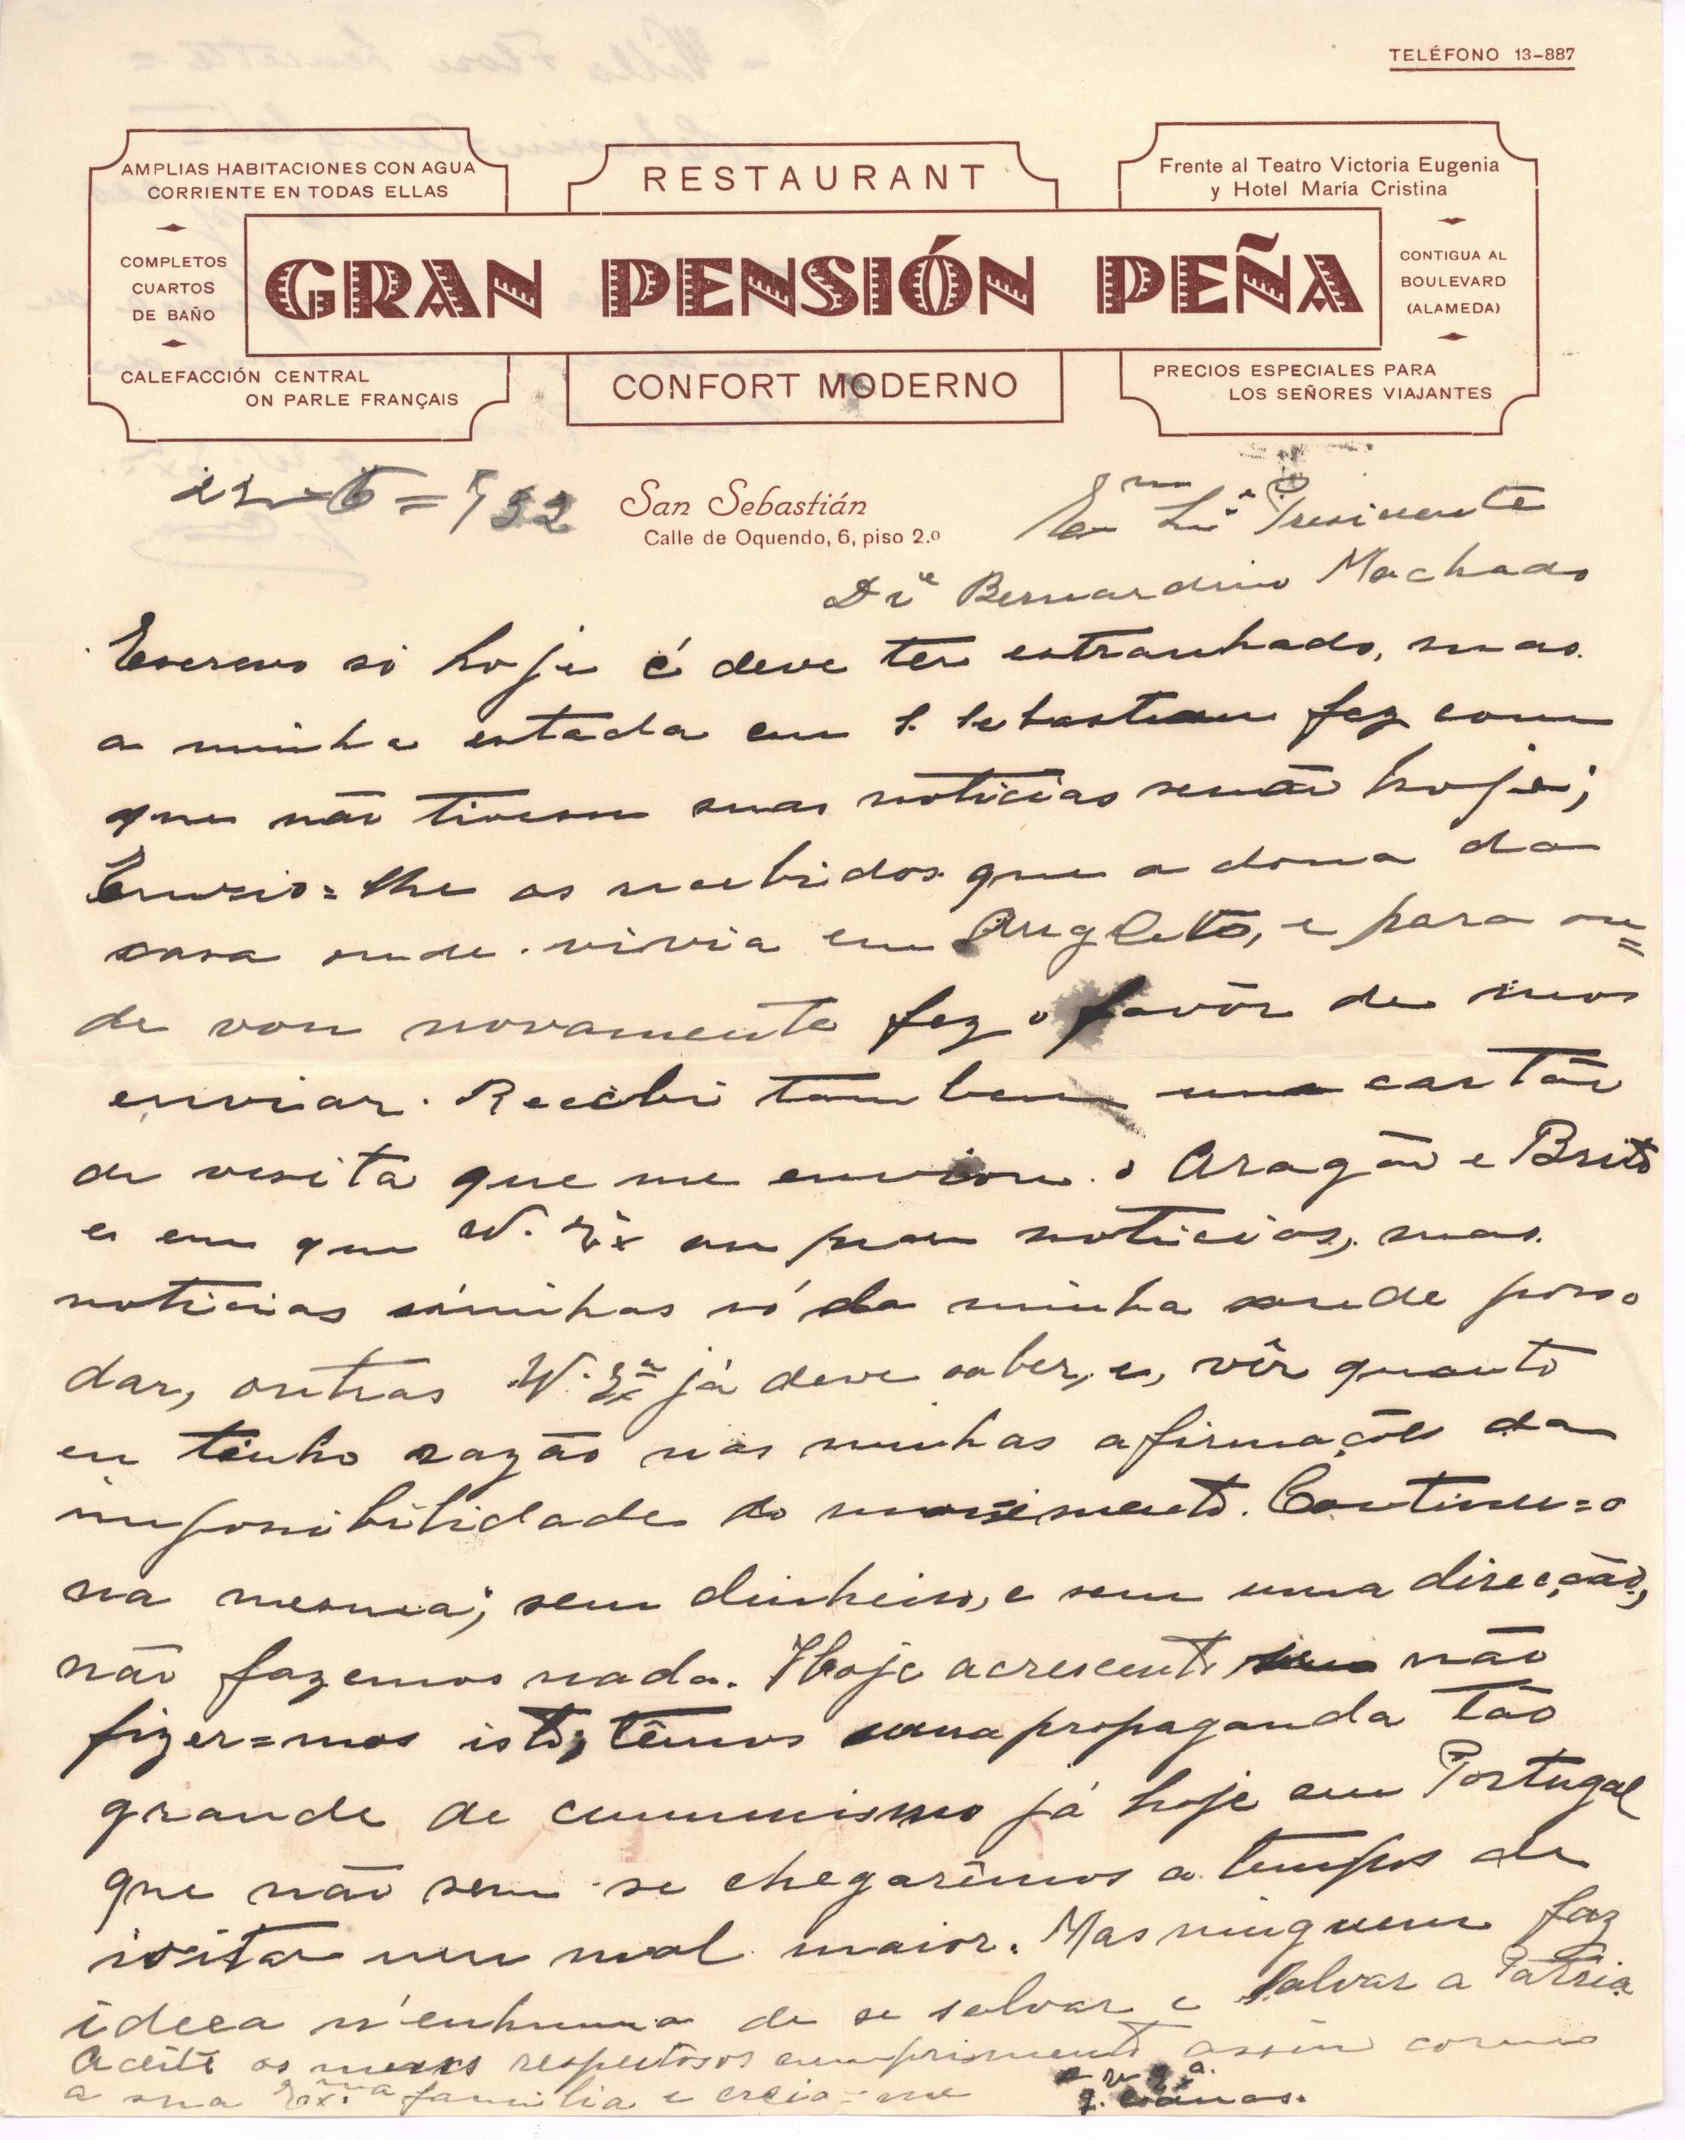 TELÉFONO 13-887
AMPLIAS HABITACIONES CON AGUA
CORRIENTE EN TODAS ELLAS
COMPLETOS
CUARTOS
DE BAÑO
CALEFACCIÓN CENTRAL
ON PARLE FRANÇAIS
RESTAURANT
GRAN PENSIÓN PEÑA
CONFORT MODERNO
Frente al Teatro Victoria Eugenia
y Hotel María Cristina
CONTIGUA AL
BOULEVARD
(ALAMEDA)
PRECIOS ESPECIALES PARA
LOS SEÑORES VIAJANTES
San Sebastián
Calle de Oquendo, 6, piso 2.º
Presidente
Bernardino Machado
Escrevo só hoje é deve ter estranhado, mas
a minha estada em S. Sebastian fez com
que não tivesse suas noticias senão hoje;
Envio=lhe os recebidos que a dona da
casa onde vivia em Anglet, e para on=
de vou novamente fez o favôr de mos
enviar. Recebi tambem um cartão
de visita que me enviou o Aragão e Brito
e em que V. Ex noticias, mas
noticias minhas só da minha saude posso
dar, outras V. Exª já deve saber, e, vêr quanto
eu tenho razão nas minhas afirmações da
imposibilidade do movimento. Continu=o
na mesma; sem dinheiro, e sem uma direcção,
não fazemos nada. Hoje acrescento não
fizer=mos isto, têmos uma propaganda tão
grande de cumunismo já hoje em Portugal
que não sei se chegarêmos a tempos de
ivitar um mal maior. Mas ninguem faz
ideea n'enhuma de se salvar e salvar a Patria
Aceite os meus respeitosos cumprimentos assim como
a sua Exma familia e creia-me